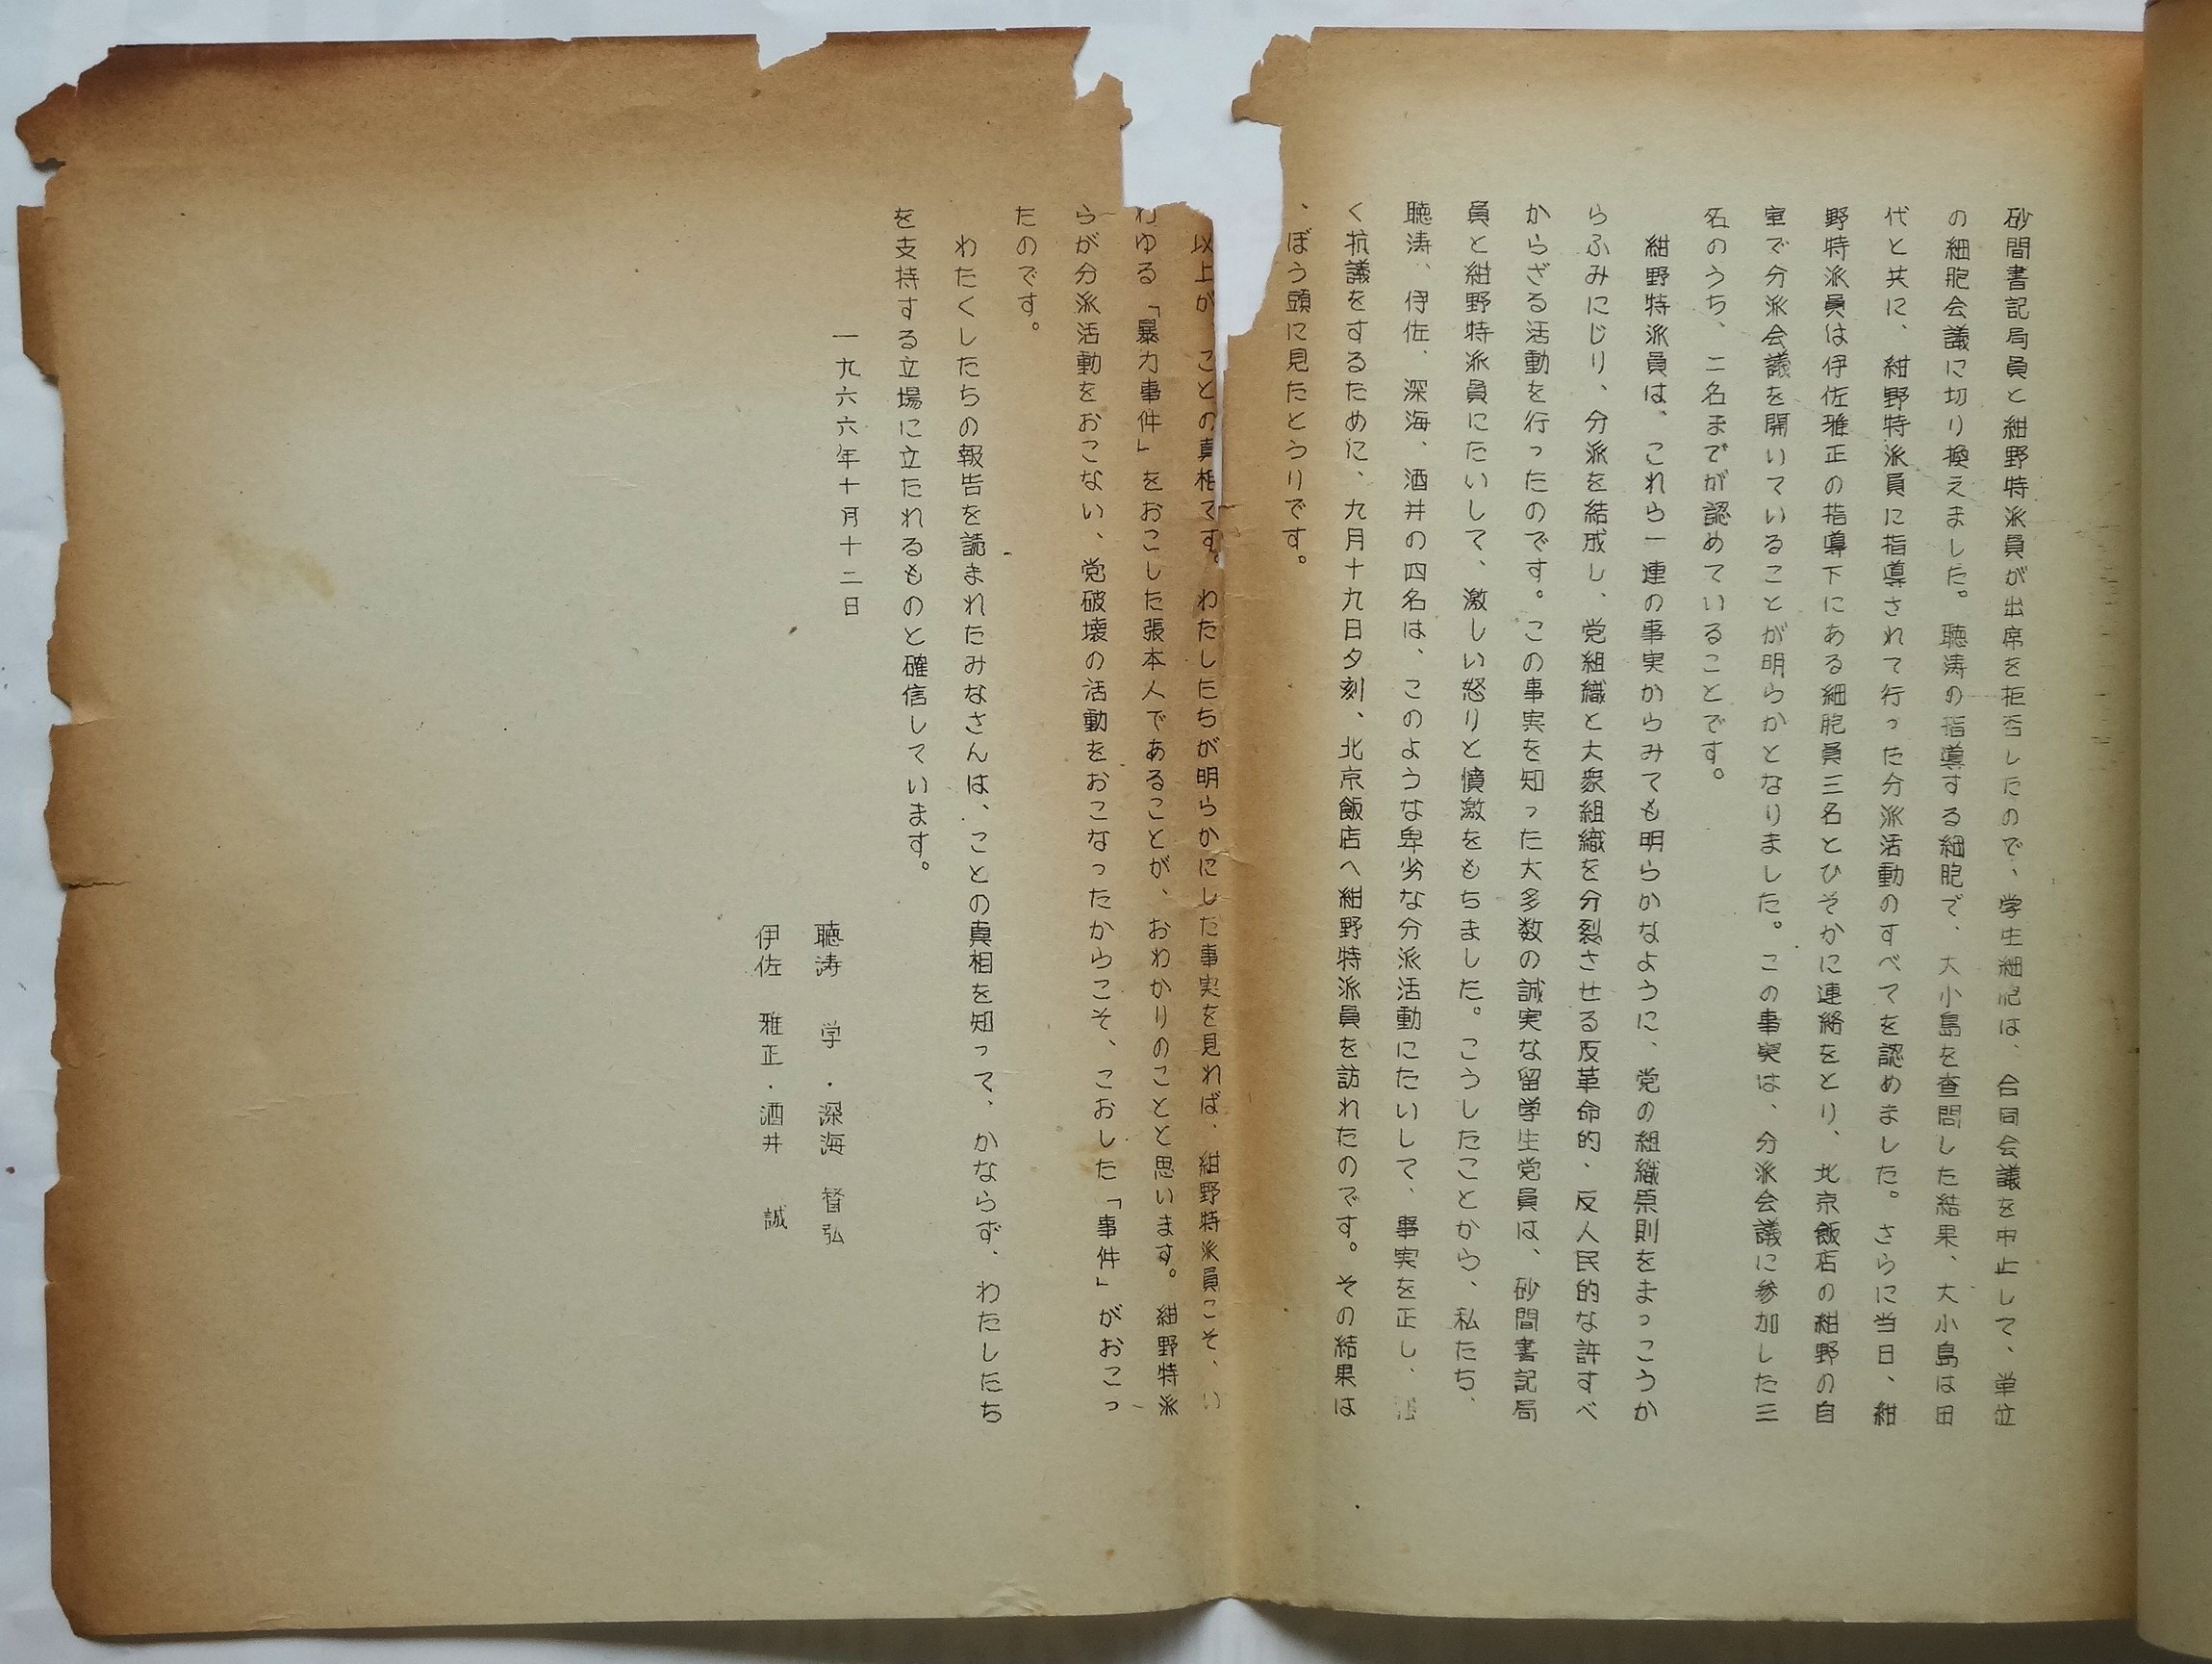 砂間書記局員と紺野特派員が出席を拒否したので、学生細胞は、合同会議を中止して、単位
の細胞会議に切り換えました。聴涛の指導する細胞で、大小島を査問した結果、大小島は田
代と共に、紺野特派員に指導されて行った分派活動のすべてを認めました。さらに当日、紺
野特派員は伊佐雅正の指導下にある細胞員三名とひそかに連絡をとり、北京飯店の紺野の自
室で分派会議を開いていることが明らかとなりました。この事実は、分派会議に参加した三
名のうち、二名までが認めていることです。
紺野特派員は、これら一連の事実からみても明らかなように、党の組織原則をまっこうか
らふみにじり、分派を結成し、党組織と大衆組織を分裂させる反革命的・反人民的な許すべ
からざる活動を行ったのです。この事実を知った大多数の誠実な留学生党員は、砂間書記局
員と紺野特派員にたいして、激しい怒りと憤激をもちました。こうしたことから、私たち、
聴涛、伊佐、深海、酒井の四名は、このような卑劣な分派活動にたいして、事実を正し、
く抗議をするために、九月十九日夕刻、北京飯店へ紺野特派員を訪れたのです。その結果は
、ぼう頭に見たとうりです。
以上が ことの真相です。わたしたちが明らかにした事実を見れば、紺野特派員こそ、い
わゆる「暴力事件」をおこした張本人であることが、おわかりのことと思います。紺野特派
らが分派活動をおこない、党破壊の活動をおこなったからこそ、こおした「事件」がおこっ
たのです。
わたくしたちの報告を読まれたみなさんは、ことの真相を知って、かならず、わたしたち
を支持する立場に立たれるものと確信しています。
一九六六年十月十二日
聴涛 学・深海 督弘
伊佐 雅正・酒井 誠